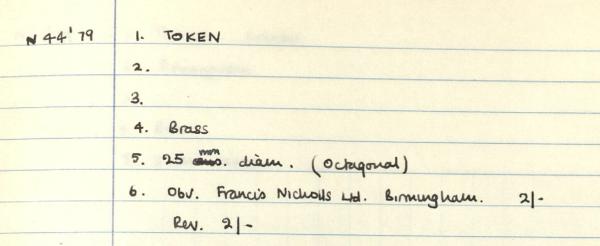 N 44'79 1. TOKEN
2.
3.
4. Brass
5. 25 mm. diam. (Octagonal)
6. Obv. Francis Nicholls Ltd. Birmingham. 2/-
Rev. 2/-